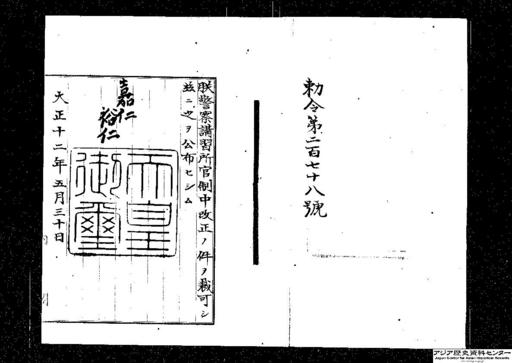 勅令第二百七十八號
朕警察講習所官制中改正ノ件ヲ裁可シ
茲ニ之ヲ公布セシム
嘉仁
裕仁
天皇
御璽
大正十二年五月三十日
アジア歴史資料センター
Japan Center for Asian Historical Records